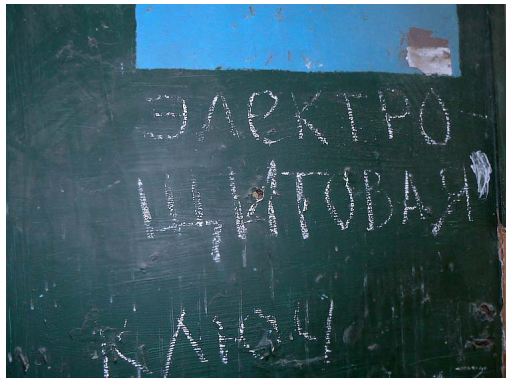 ЭЛЕКТРО-
ЩИТОВАЯ
КЛЮЧ